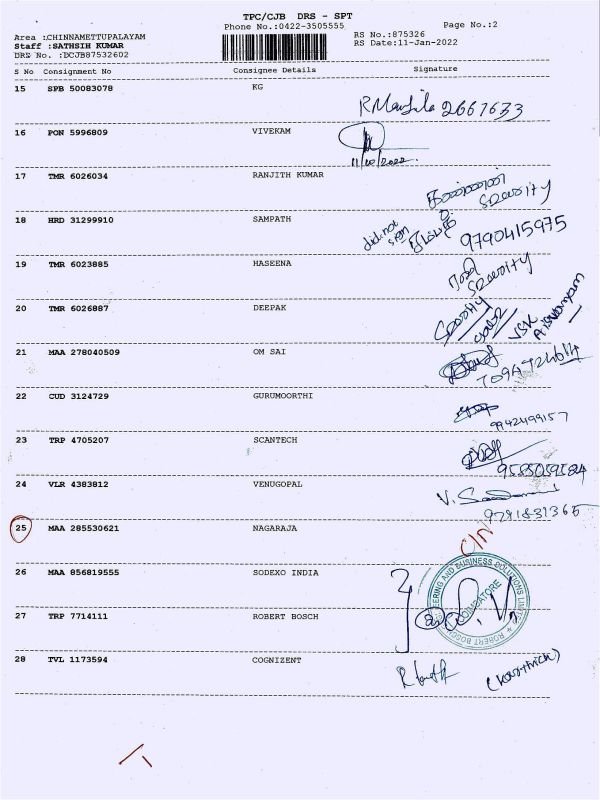 TPC/CJB DRS - SPT
Phone No.:0422-3505555
Page No.:2
Area :CHINNAMETTUPALAYAM
Staff :SATHSIH KUMAR
DRS No. :DCJB87532602
RS No.:875326
RS Date:11-Jan-2022
S No Consignment No Consignee Details Signature
15 SPB 50083078 KG
2667673
16 PON 5996809 VIVEKAM
11/10/2022
17 TMR 6026034 RANJITH KUMAR
Security
18 HRD 31299910 SAMPATH
did not sign
9790415975
19 TMR 6023885 HASEENA
Security
20 TMR 6026887 DEEPAK
Security
21 MAA 278040509 OM SAI
22 CUD 3124729 GURUMOORTHI
9942499157
23 TRP 4705207 SCANTECH
24 VLR 4383812 VENUGOPAL
9791831365
25 MAA 285530621 NAGARAJA
26 MAA 856819555 SODEXO INDIA
COIMBATORE
27 TRP 7714111 ROBERT BOSCH
28 TVL 1173594 COGNIZENT
(Karthick)